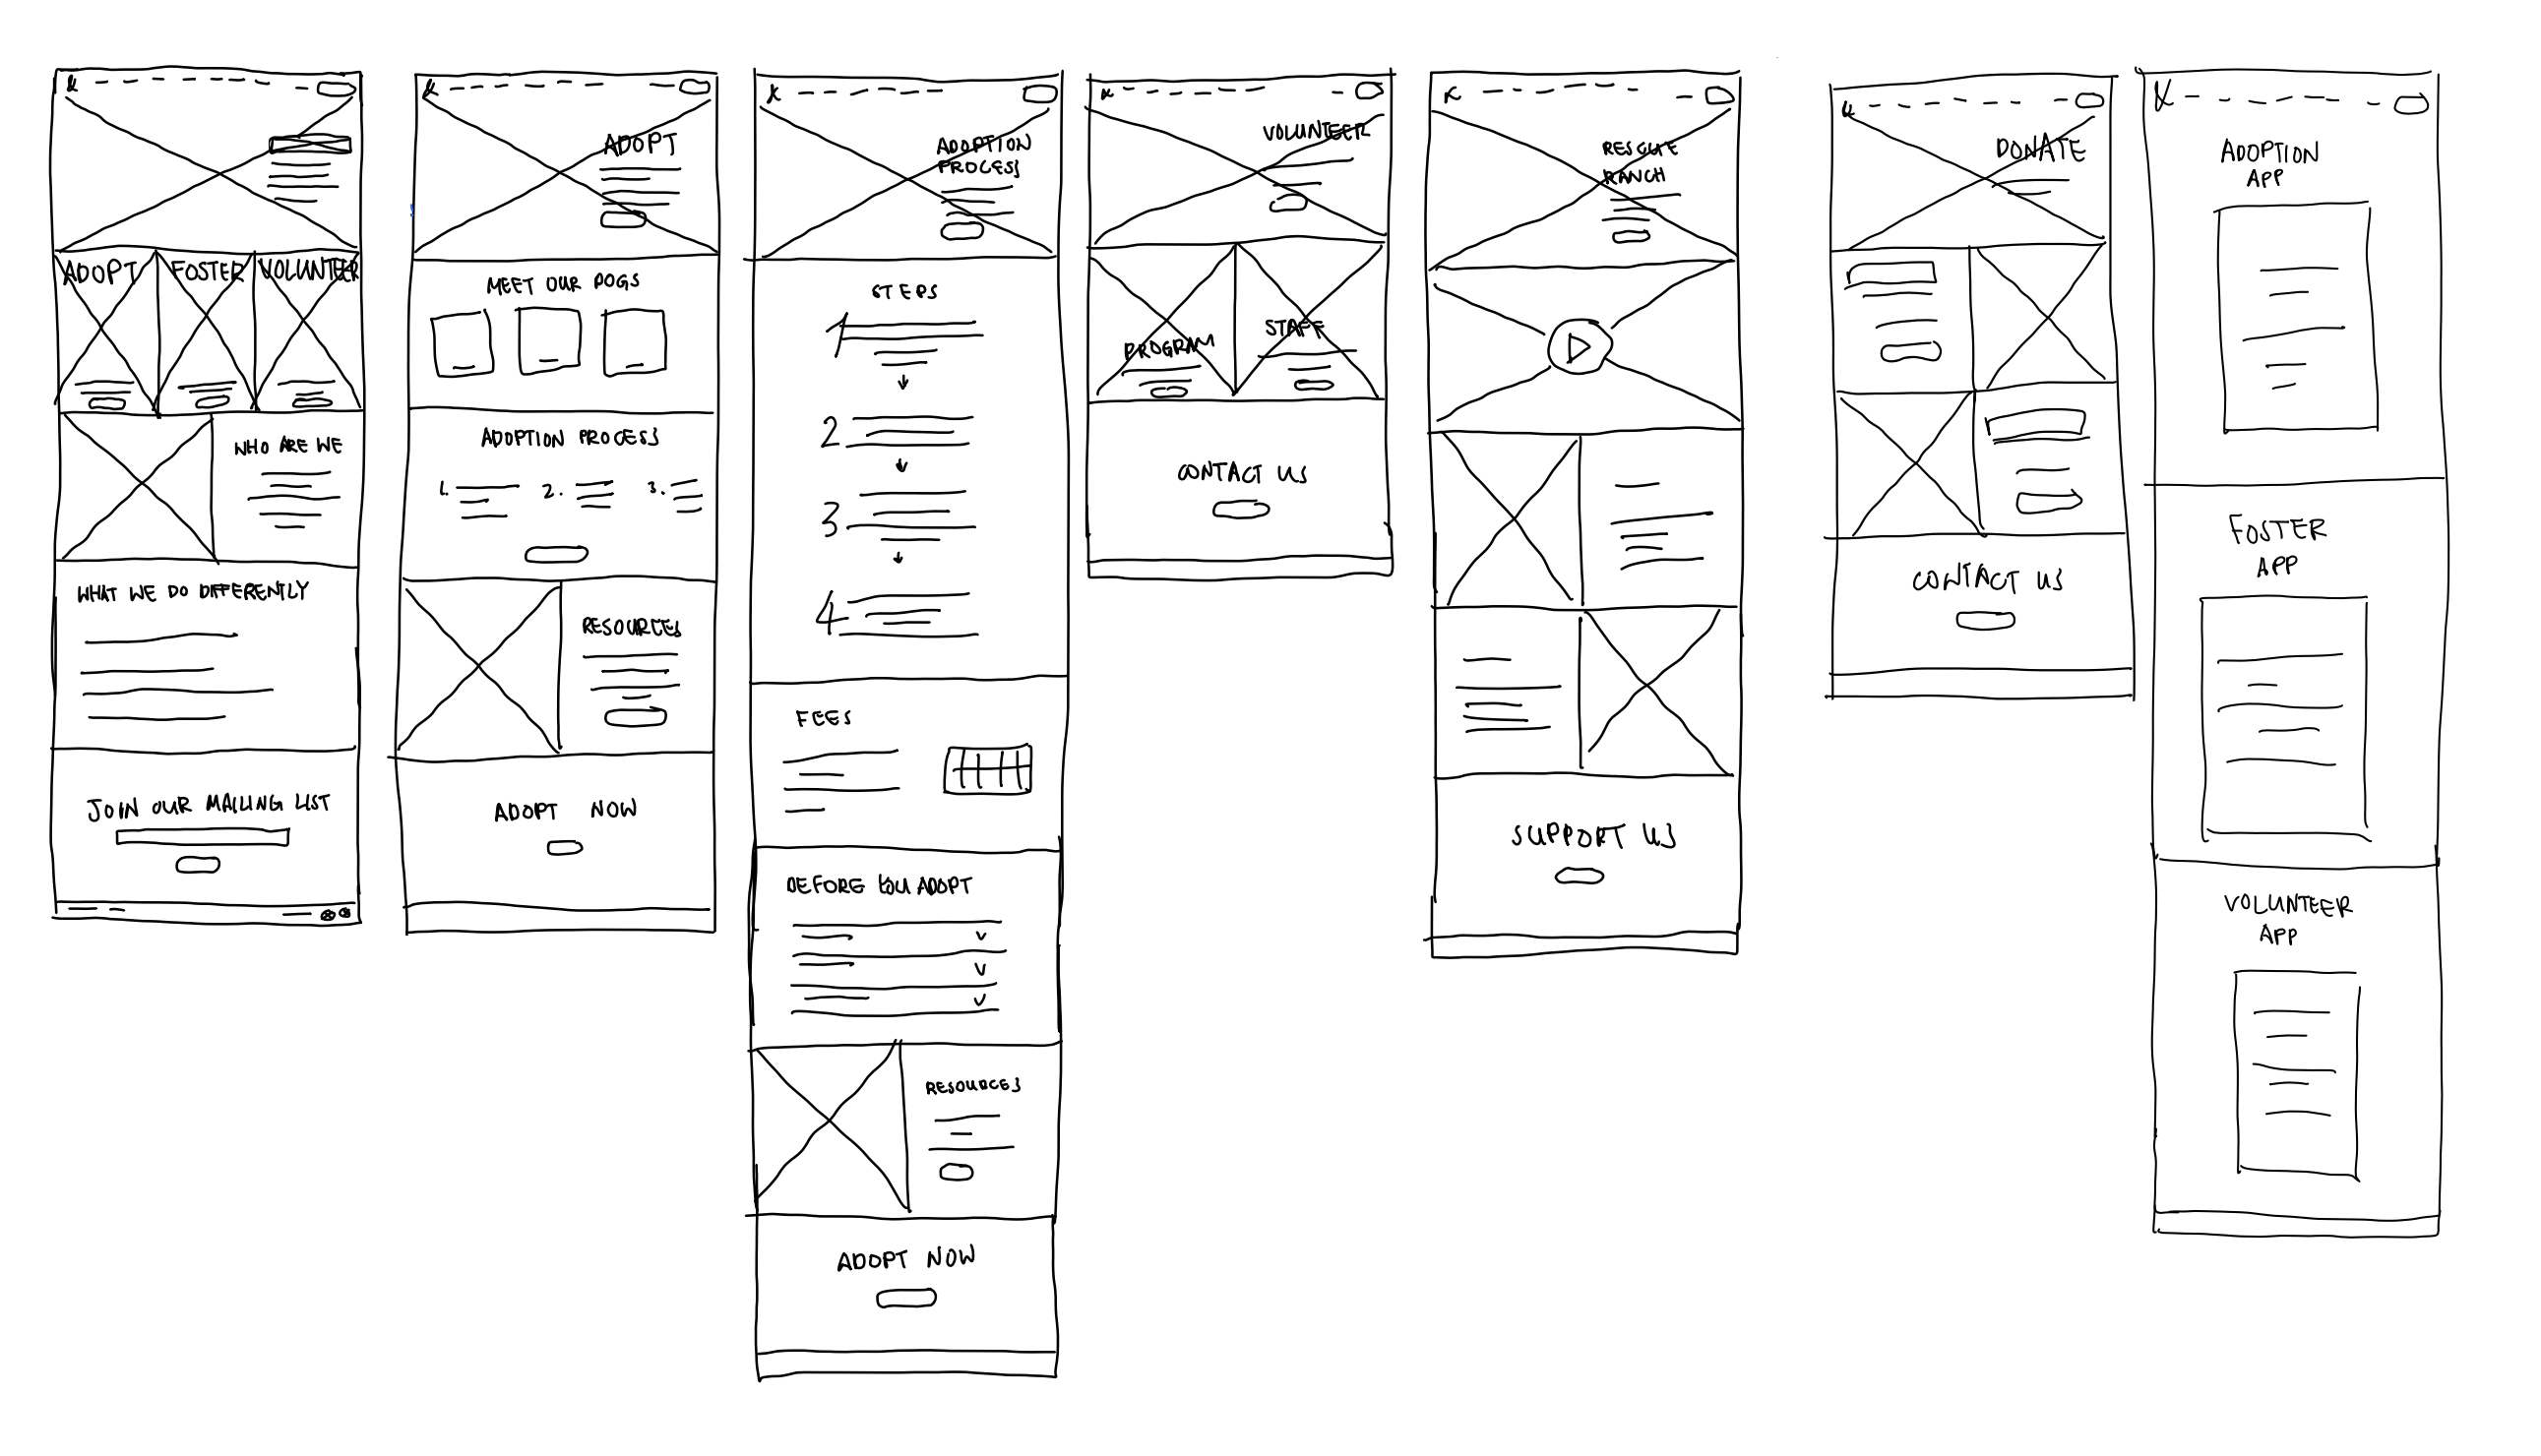 ADOPT
FOSTER
VOLUNTEER
WHO ARE WE
WHAT WE DO DIFFERENTLY
JOIN OUR MAILING LIST
ADOPT
MEET OUR DOGS
ADOPTION PROCESS
1.
2.
3.
RESOURCES
ADOPT NOW
ADOPTION
PROCESS
STEPS
1
2
3
4
FEES
BEFORE YOU ADOPT
RESOURCES
ADOPT NOW
VOLUNTEER
PROGRAM
STAFF
CONTACT US
RESCUE
RANCH
SUPPORT US
DONATE
CONTACT US
ADOPTION
APP
FOSTER
APP
VOLUNTEER
APP